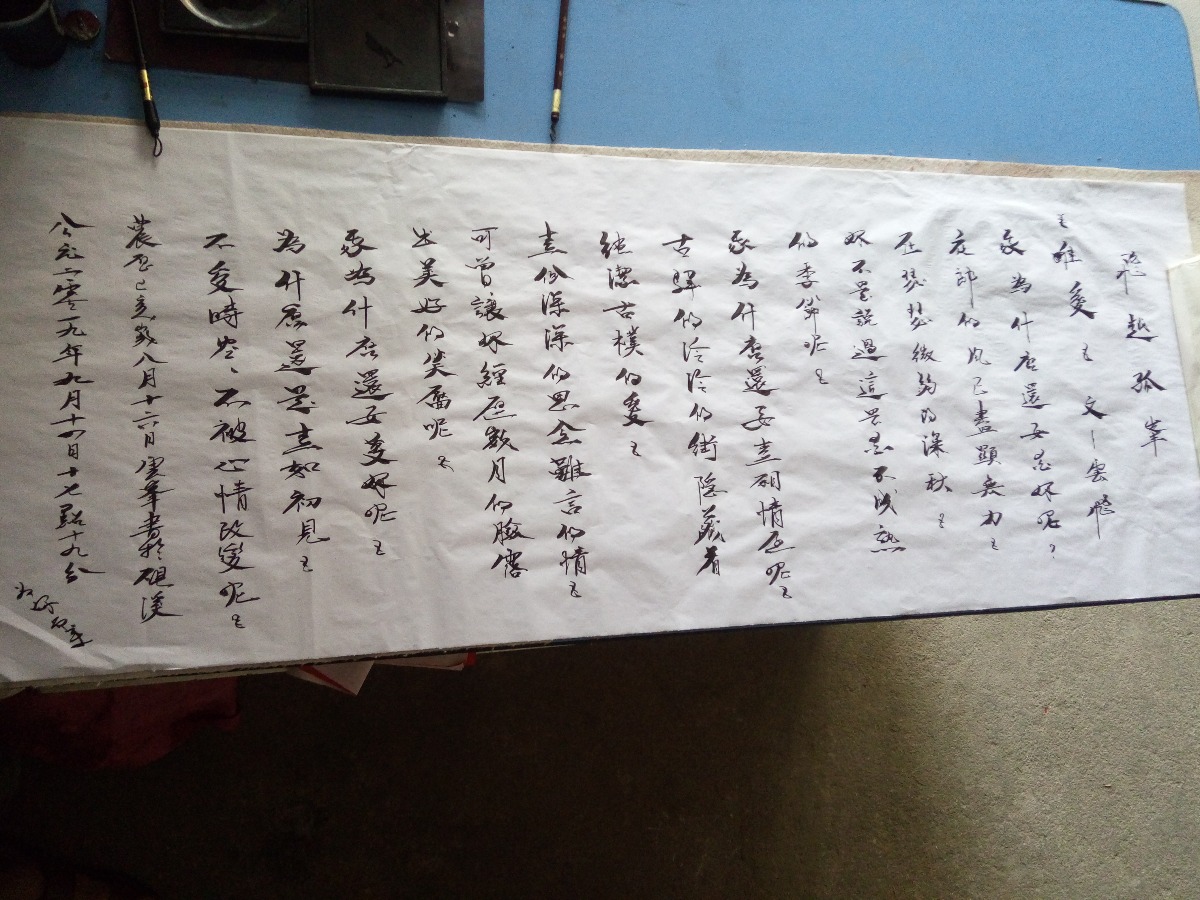 飛越孤峯
唯愛 文 雲
我為什麼還要戀妳呢?
夜郎的風已盡顯無力
在瑟瑟微的深秋
妳不是說過這是戀不成熟
的季節呢
我為什麼還要
古驛的冷冷的街隱藏着
純潔古樸的愛
這份深深的思念難言的情
可曾讓妳經歷歲月的臉露
出美好的笑靨呢
我為什麼還要愛妳呢
為什麼還是這如初見
不愛時空、不被心情改變呢
農歷己亥歲八月十六日雲峯書於硯溪
公元二零一九年九月十四日十七點十九分